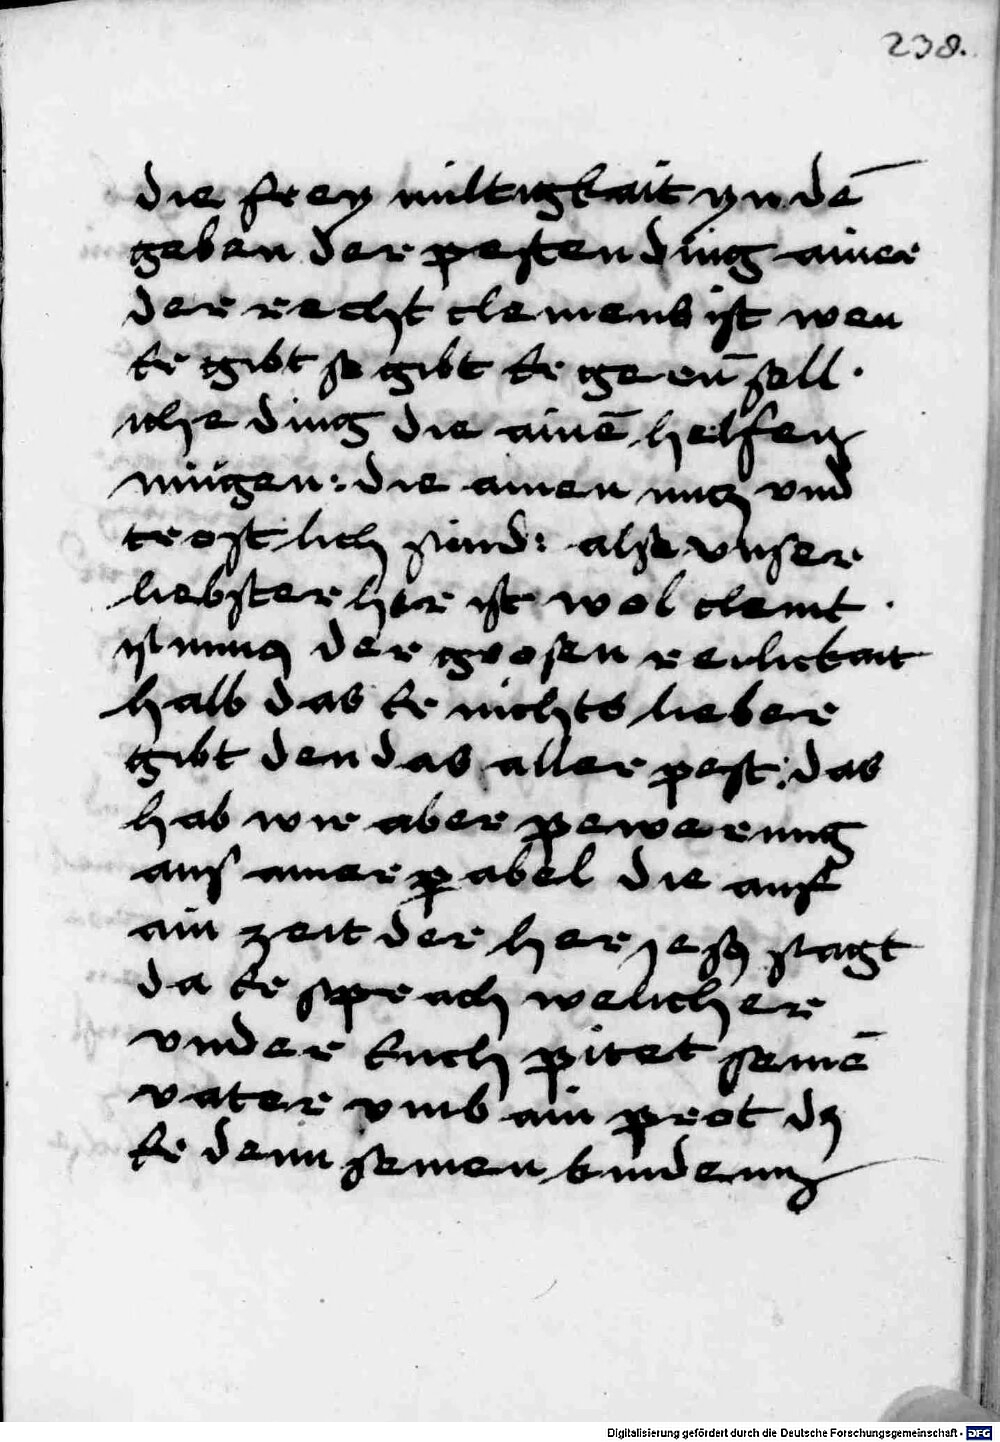 238.
die frey miltigkait yn dē
geben der pesten ding ainer
der recht clemens ist wen
er gibt so gibt er geren̄ soll
iche ding die ainē helfen
mügen: die ainen nucz vnd
trostlich sind: also vnser
liebster her ist wol clemt
ist der grosen reilickait
halb das er nichts lieber
gibt den das aller pest: das
hab wir aber pewerung
aus ainer pabel die auf
ain zeit der her sagt
da er sprach welicher
vnder euch pitet seinē
vater vmb ain prot dz
er denn seinen kinderen
Digitalisierung gefördert durch die Deutsche Forschungsgemeinschaft - DFG